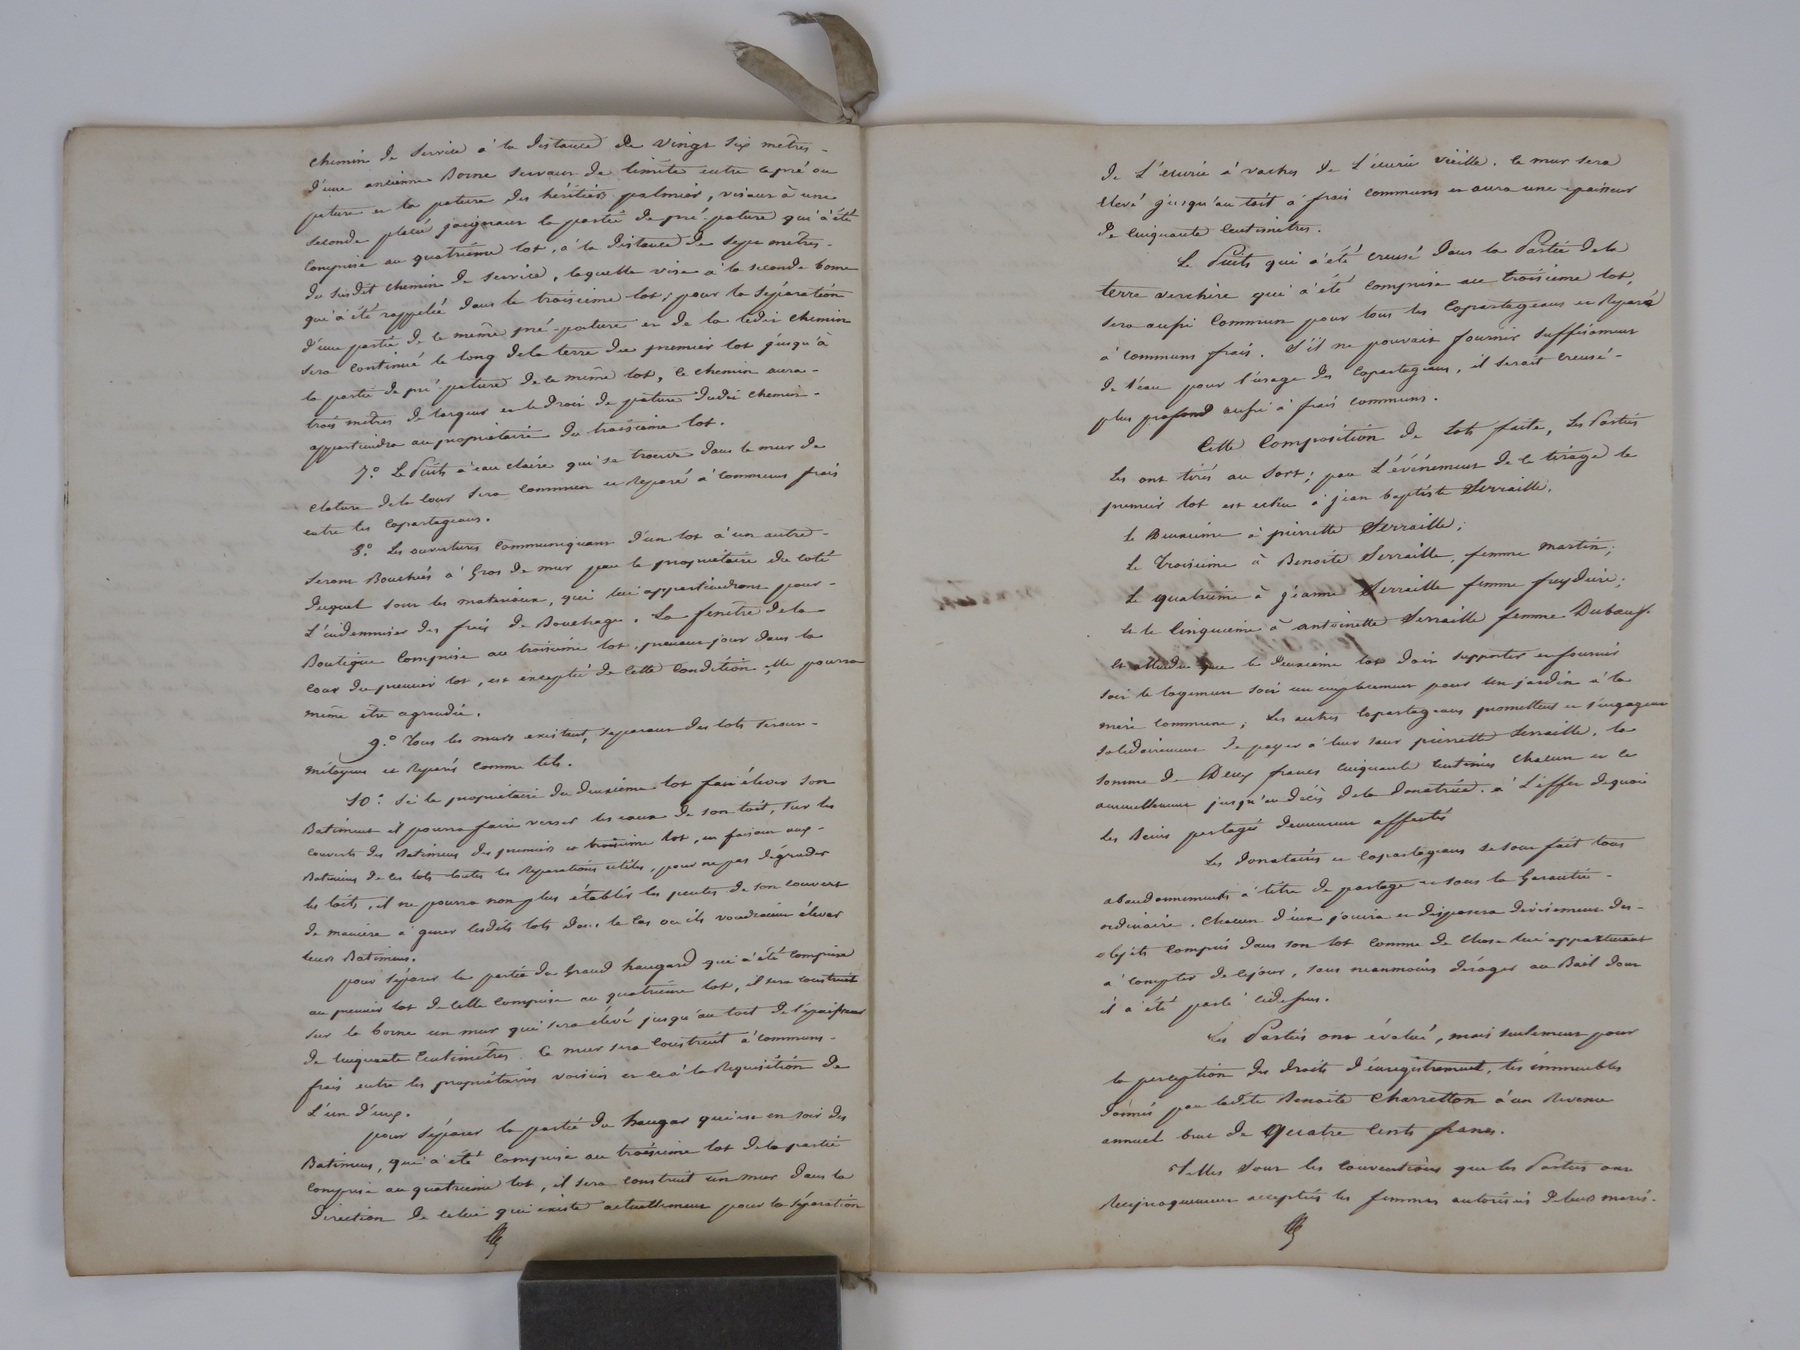 chemin de service à la distance de vingt six mètres -
d'une ancienne Borne servant de limite entre ce pré ou
pature et la pature des héritiers palmier, visant à une
seconde placée joignant la partie de pré-pature qui a été
comprise au quatrième lot, à la distance de sept mètres -
du susdit chemin de service, laquelle vise à la seconde borne
qui a été rappelée dans le troisième lot; pour la séparation
d'une partie de le même pré-pature et de la ledit chemin
sera continué le long de la terre du premier lot jusqu'à
la partie de pré-pature de le même lot, le chemin aura -
trois mètres de largeur et le droit de pature dudit chemin -
appartiendra au propriétaire du troisième lot.
7.° Le Puits à eau claire qui se trouve dans le mur de
cloture de la cour sera commun et réparé à communs frais
entre les copartageans.
8.° Les ouvertures communiquant d'un lot à un autre -
seront Bouchées à Gros de mur par le propriétaire du coté
duquel sont les materiaux, qui lui appartiendront pour -
L'indemniser des frais de Bouchage. La fenêtre de la
Boutique comprise au troisième lot, prenant jour dans la
cour du premier lot, est exceptée de cette condition, elle pourra
même être agrandie.
9.° Tous les murs existant, séparant des lots seront -
mitoyens et réparés comme tels.
10.° Si le propriétaire du deuxième lot fait élever son
Batiment il pourra faire verser les eaux de son toit, sur les
couverts des Batimens des premier et troisième lot, en faisant aux -
Batimens de ces lots toutes les réparations utiles, pour ne pas dégrader
les toits, il ne pourra non plus établir les pentes de son couvert
de manière à gener lesdits lots dans le cas où ils voudraient élever
leurs Batimens.
pour séparer la partie du Grand hangard qui a été comprise
au premier lot de celle comprise au quatrième lot, il sera construit
sur la borne un mur qui sera élevé jusqu'au toit de l'épaisseur
de cinquante Centimètres. Ce mur sera Construit à communs -
frais entre les propriétaires voisins et ce à la Réquisition de
L'un d'eux.
pour séparer la partie du hangar qui est en soir des
Batimens, qui a été comprise au troisième lot de la partie
comprise au quatrième lot, il sera construit un mur dans la
direction de celui qui existe actuellement pour la séparation
de L'écurie à vaches de L'écurie vieille. Ce mur sera
élevé jusqu'au toit à frais communs et aura une épaisseur
de cinquante Centimètres.
Le Puits qui a été creusé dans la Partie de la
terre verchère qui a été comprise au troisième lot,
sera aussi Commun pour tous les Copartageans et Réparé
à communs frais. S'il ne pouvait fournir suffisament
de l'eau pour l'usage des Copartageans, il serait creusé -
plus profond aussi à frais communs.
Cette Composition de Lots faite, Les Parties
Les ont tirés au Sort; par L'événement de ce tirage le
premier lot est echu à jean baptiste Serraille,
le Deuxième à pierrette Serraille;
Le Troisième à Benoite Serraille, femme martin;
Le quatrième à jéanne Serraille femme freydière;
et le Cinquième à antoinette Serraille femme Dubœuf.
Et attendu que le deuxième lot doit supporter en fournir
soit le logement soit un emplacement pour un jardin à la
mère commune; Les autres Copartageans promettent et s'engagent
solidairement de payer à leur sœur pierrette Serraille, la
somme de Deux francs cinquante centimes chacun et ce
annuellement jusqu'au décès de la donatrice. à L'effet de quoi
Les Biens partagés demeurent affectés
Les donataires et Copartageans se sont fait tous
abandonnements à titre de partage et sous la Garantie -
ordinaire. Chacun d'eux jouira et disposera divisément des -
objets compris dans son lot comme de chose lui appartenant
à compter de ce jour, sans néanmoins déroger au Bail dont
il a été parlé cidessus.
Les Parties ont évalué, mais seulement pour
la perception des droits d'énregistrement, les immeubles
donnés par ladite Benoite Charretton à un Revenu
annuel brut de Quatre Cents francs.
Telles sont les conventions que les Parties ont
Réciproquement acceptées les femmes autorisées de leurs maris -